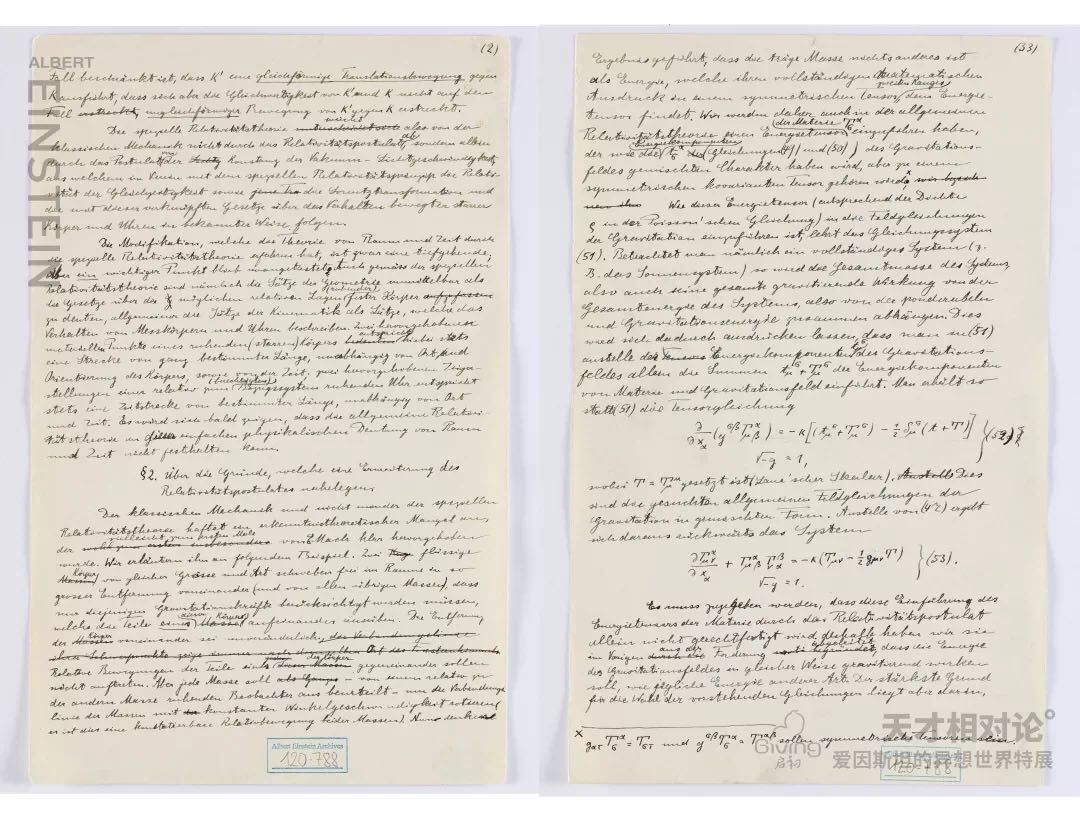 ALBERT
EINSTEIN
(2)
Fall beschränkt ist, dass K' eine gleichförmige Translationsbewegung gegen
K ausführt, dass sich aber die Gleichwertigkeit von K' und K nicht auf den
Fall erstreckt, ungleichförmiger Bewegung von K' gegen K erstreckt.
Die spezielle Relativitätstheorie weicht also von der
klassischen Mechanik nicht durch das Relativitätspostulat ab, sondern allein
durch das Postulat der Konstanz der Vakuum-Lichtgeschwindigkeit,
aus welchem im Verein mit dem speziellen Relativitätsprinzip die Relati-
vität der Gleichzeitigkeit sowie die Lorentztransformation und
die mit dieser verknüpften Gesetze über das Verhalten bewegter starrer
Körper und Uhren in bekannter Weise folgen.
Die Modifikation, welche die Theorie von Raum und Zeit durch
die spezielle Relativitätstheorie erfahren hat, ist zwar eine tiefgehende;
aber ein wichtiger Punkt blieb unangetastet. Auch gemäss der speziellen
Relativitätstheorie sind nämlich die Sätze der Geometrie unmittelbar als
die Gesetze über die möglichen relativen Lagen (ruhender) fester Körper aufzufassen
zu deuten, allgemeiner die Sätze der Kinematik als Sätze, welche das
Verhalten von Messkörpern und Uhren beschreiben. Zwei hervorgehobenen
materiellen Punkten eines ruhenden (starren) Körpers entspricht hiebei stets
eine Strecke von ganz bestimmter Länge, unabhängig von Ort und
Orientierung des Körpers, sowie von der Zeit; zwei hervorgehobenen Zeiger-
stellungen einer relativ zum (berechtigten) Bezugssystem ruhenden Uhr entspricht
stets eine Zeitstrecke von bestimmter Länge, unabhängig von Ort
und Zeit. Es wird sich bald zeigen, dass die allgemeine Relativi-
tätstheorie an dieser einfachen physikalischen Deutung von Raum
und Zeit nicht festhalten kann.
§2. Über die Gründe, welche eine Erweiterung des
Relativitätspostulates nahelegen.
Der klassischen Mechanik und nicht minder der speziellen
Relativitätstheorie haftet ein erkenntnistheoretischer Mangel an,
der vielleicht zum ersten Male von E. Mach klar hervorgehoben
wurde. Wir erläutern ihn an folgendem Beispiel. Zwei flüssige
Körper von gleicher Grösse und Art schweben frei im Raume in so
grosser Entfernung voneinander (und von allen übrigen Massen), dass
nur diejenigen Gravitationskräfte berücksichtigt werden müssen,
welche die Teile eines dieser Körper aufeinander ausüben. Die Entfernung
der Körper voneinander sei unveränderlich,
Relative Bewegungen der Teile eines der Körper gegeneinander sollen
nicht auftreten. Aber jede Masse soll – von einem relativ zu
der andern Masse ruhenden Beobachter aus beurteilt – um die Verbindungs-
linie der Massen mit konstanter Winkelgeschwindigkeit rotieren (
es ist dies eine konstatierbare Relativbewegung beider Massen). Nun denken
Albert Einstein Archives
120-788
(33)
Ergebnis geführt, dass die träge Masse nichts anderes ist
als Energie, welche ihren vollständigen mathematischen
Ausdruck in einem symmetrischen Tensor zweiten Ranges, dem Energie-
tensor findet. Wir werden daher auch in der allgemeinen
Relativitätstheorie einen Energietensor (der Materie T_σ^α) einzuführen haben,
der wie die Energiekomponenten t_σ^α (Gleichungen (49) und (50)) des Gravitations-
feldes gemischten Charakter haben wird, aber zu einem
symmetrischen kovarianten Tensor gehören wird. x
Wie dieser Energietensor (entsprechend der Dichte
ρ in der Poisson'schen Gleichung) in die Feldgleichungen
der Gravitation einzuführen ist, lehrt das Gleichungssystem
(51). Betrachtet man nämlich ein vollständiges System (z.
B. das Sonnensystem) so wird die Gesamtmasse des Systems,
also auch seine gesamte gravitierende Wirkung von der
Gesamtenergie des Systems, also von der ponderabeln
und Gravitationsenergie zusammen abhängen. Dies
wird sich dadurch ausdrücken lassen, dass man in (51)
anstelle der Energiekomponenten t_μ^σ des Gravitations-
feldes allein die Summen t_μ^σ + T_μ^σ der Energiekomponenten
von Materie und Gravitationsfeld einführt. Man erhält so
statt (51) die Tensorgleichung
∂/∂x_α (g^{σβ} Γ_{μβ}^α) = −κ[(t_μ^σ + T_μ^σ) − ½ δ_μ^σ (t + T)] } (52)
√−g = 1,
wobei T = T_μ^μ gesetzt ist (Laue'scher Skalar). Dies
sind die gesuchten allgemeinen Feldgleichungen der
Gravitation in gemischter Form. Anstelle von (47) ergibt
sich daraus rückwärts das System
∂Γ_{μν}^α/∂x_α + Γ_{μβ}^α Γ_{να}^β = −κ(T_{μν} − ½ g_{μν} T) } (53).
√−g = 1.
Es muss zugegeben werden, dass diese Einführung des
Energietensors der Materie durch das Relativitätspostulat
allein nicht gerechtfertigt wird; deshalb haben wir sie
im Vorigen aus der Forderung abgeleitet, dass die Energie
des Gravitationsfeldes in gleicher Weise gravitierend wirken
soll, wie jegliche Energie anderer Art. Der stärkste Grund
für die Wahl der vorstehenden Gleichungen liegt aber darin,
x g_{ατ} T_σ^α = T_{στ} und g^{σβ} T_σ^α = T^{αβ} sollen symmetrische Tensoren sein.
120-788
Giving
启初
天才相对论
爱因斯坦的异想世界特展